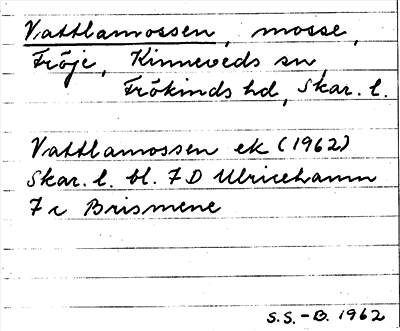 Vattlamossen, mosse,
Fröje, Kinneveds sn,
Frökinds hd, Skar. l.
Vattlamossen ek (1962)
Skar. l. bl. 7D Ulricehamn
7c Brismene
S.S.-B. 1962